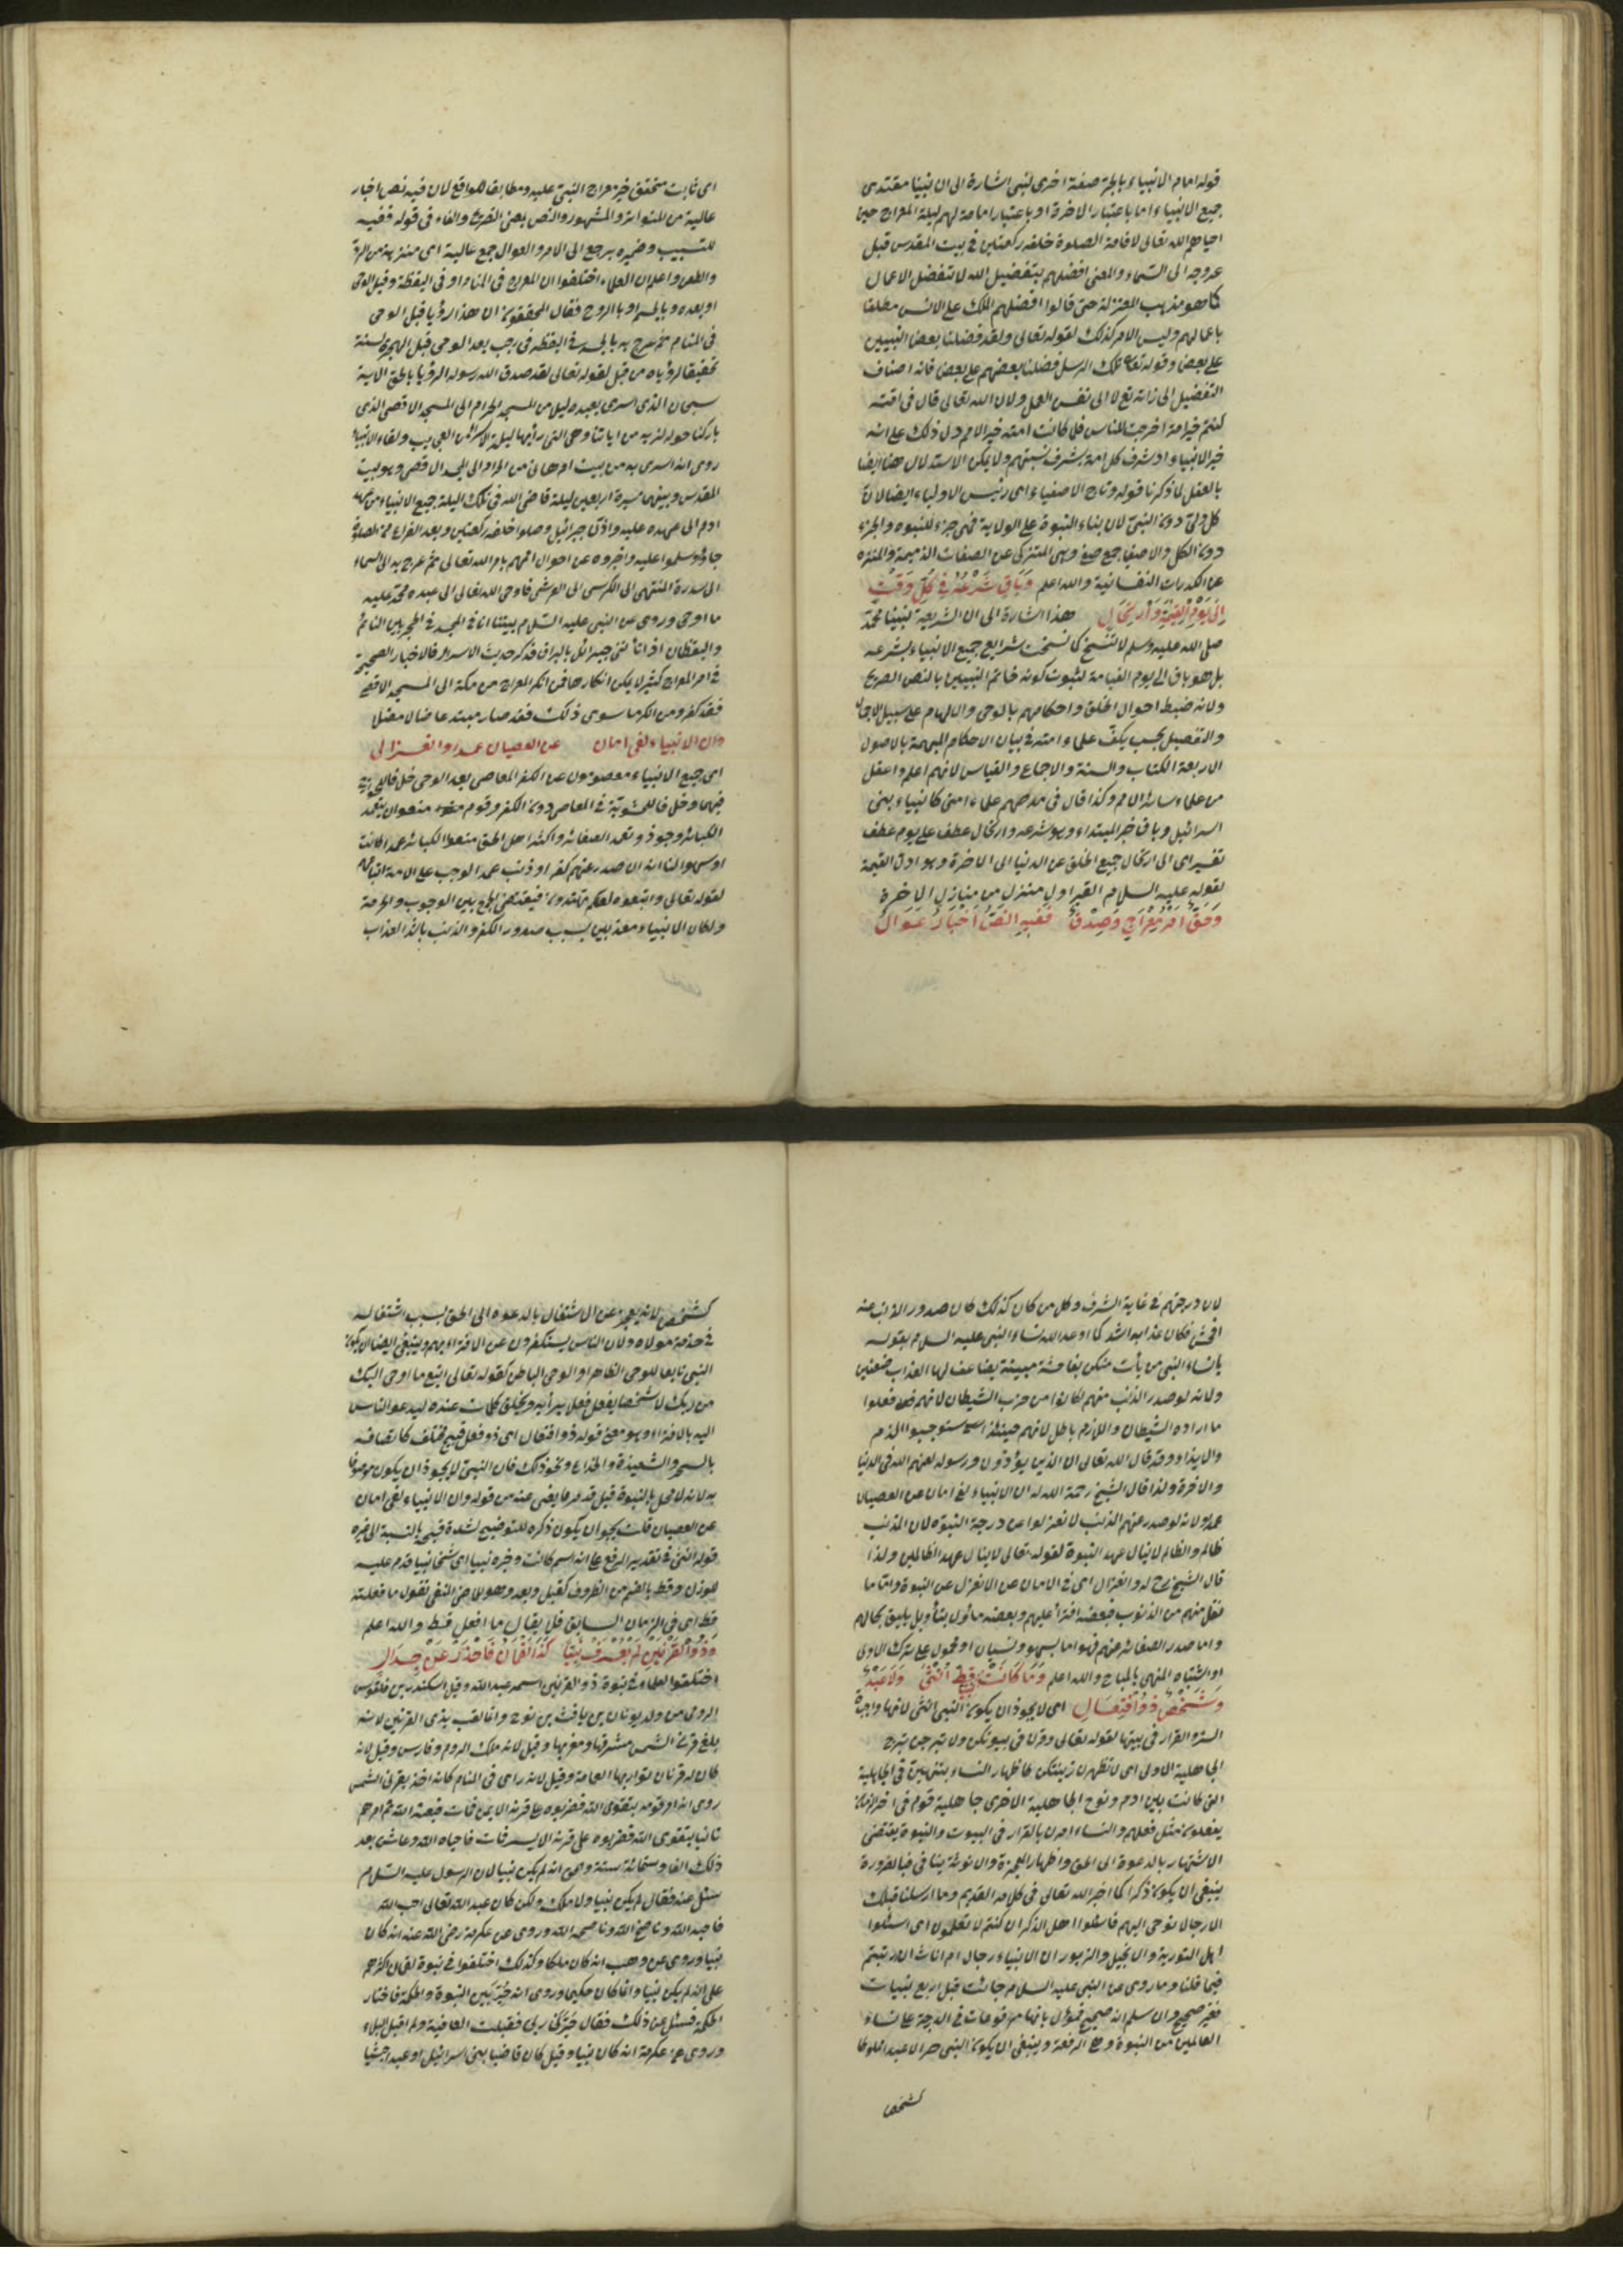 قوله امام الانبياء بالجر صفة اخرى لنبى اشارة الى ان نبينا مقتدى
جميع الانبياء اما باعتبار الاخرة او باعتبار امامة لهم ليلة المعراج حين
احياهم الله تعالى لاقامة الصلوة خلفه ركعتين فى بيت المقدس قبل
عروجه الى السماء والمعنى افضلهم بتفضيل الله لا بتفضل الاعمال
كما هو مذهب المعتزلة حتى قالوا افضلهم الملك على الانس مطلقا
باعمالهم وليس الامر كذلك لقوله تعالى ولقد فضلنا بعض النبيين
على بعض وقوله تعا تلك الرسل فضلنا بعضهم على بعض فانه اضاف
التفضيل الى ذاته تع لا الى نفس العمل ولان الله تعالى قال فى امته
كنتم خير امة اخرجت للناس فلما كانت امته خير الامم دل ذلك على انه
خير الانبياء اذ شرف كل امة بشرف نبيهم ولا يمكن الاستدلال هنا ايضا
بالعقل لما ذكرنا قوله وتاج الاصفياء اى رئيس الاولياء ايضا لان
كل ولى دون النبى لان بناء النبوة على الولاية فهى جزء للنبوة والجزء
دون الكل والاصفيا جمع صفى وهى المتنزكى عن الصفات الذميمة والمنزه
عن الكدرات النفسانية والله اعلم وَبَاقٍ شَرْعُهُ فِى كُلِّ وَقْتٍ
اِلَى يَوْمِ الْقِيٰمَةِ وَارْتِحَالِ هذا اشارة الى ان الشريعة لنبينا محمد
صلى الله عليه وسلم لا تنسخ كما نسخت شرايع جميع الانبياء بشرعه
بل هو باق الى يوم القيامة لثبوت كونه خاتم النبيين بالنص الصريح
ولانه ضبط احوال الخلق واحكامهم بالوحى والالهام على سبيل الاجمال
والتفصيل بحسب يكف علماء امته فى بيان الاحكام المبهمة بالاصول
الاربعة الكتاب والسنة والاجماع والقياس لانهم اعلم واعقل
من علماء سائر الامم وكذا قال فى مدحهم علماء امتى كانبياء بنى
اسرائيل وباق خبر المبتداء وهو شرعه وارتحال عطف على يوم عطف
تفسير اى الى ارتحال جميع الخلق عن الدنيا الى الاخرة وهو ادق القيمة
لقوله عليه السلام القبر اول منزل من منازل الاخرة
وَحَقٌّ اَمْرُ مِعْرَاجٍ وَصِدْقٌ فَفِيهِ النَّصُّ اَخْبَارُ عَوَالُ
اى ثابت متحقق خبر معراج النبى عليه ومطابق للواقع لان فيه نص اخبار
عالية من المتواتر والمشهور والنص بمعنى التصريح والفاء فى قوله ففيه
للتسبيب وضميره يرجع الى الامر والعوال جمع عالية اى منزهة من الرد
والطعن واعلم ان العلماء اختلفوا ان المعراج فى المنام او فى اليقظة وقبل الوحى
او بعده وبالجسم او بالروح فقال المحققون ان هذا رؤيا قبل الوحى
فى المنام ثم عرج به بالجسد فى اليقظة فى رجب بعد الوحى قبل الهجرة بسنة
تحقيقا لرؤياه من قبل لقوله تعالى لقد صدق الله رسوله الرؤيا بالحق الاية
سبحان الذى اسرى بعبده ليلا من المسجد الحرام الى المسجد الاقصى الذى
باركنا حوله لنريه من اياتنا وهى التى رأيها ليلة الاسراء من العجايب ولقاء الانبياء
روى انه اسرى به من بيت ام هانى من الحرام الى المسجد الاقصى وهو بيت
المقدس وبينهما مسيرة اربعين ليلة قاضى الله فى تلك الليلة جميع الانبياء من عهد
ادم الى عهده عليه واذن جبرائيل وصلوا خلفه ركعتين وبعد الفراغ من الصلوة
جاؤا وسلموا عليه واخبروه عن احوال اممهم بامر الله تعالى ثم عرج به الى السماء
الى سدرة المنتهى الى الكرسى الى العرش فاوحى الله تعالى الى عبده محمد عليه
ما اوحى وروى عن النبى عليه السلام بينا انا فى المسجد فى الحجر بين النائم
واليقظان اذ انا نى جبرائل بالبراق فذكر حديث الاسراء فالاخبار الصحيحة
فى امر المعراج كثير لا يمكن انكارها فمن انكر المعراج من مكة الى المسجد الاقصى
فقد كفر ومن انكر ما سوى ذلك فقد صار مبتدعا ضالا مضلا
وان الانبياء لفى امان عن العصيان عمدا وانعزالى
اى جميع الانبياء معصومون عن الكفر المعاصى بعد الوحى خلافا
فيهما وخلافا للحشوية فى المعاصى دون الكفر وقوم منعوا تعمد
الكبائر وجوز وتعمد الصغائر واكثر اهل الحق منعوا الكبائر عمدا كانت
او سهوا لنا انه ان صدر عنهم كفر او ذنب عمدا لوجب على الامة اتباعهم
لقوله تعالى واتبعوه لعلكم تهتدون فيقتضى الجمع بين الوجوب والحرمة
ولكان الانبياء معذبين بسبب صدور الكفر والذنب باشد العذاب
لان درجتهم فى غاية الشرف وكل من كان كذلك كان صدور الذنب عنه
افحش فكان عذابه اشد كما اوعد الله نساء النبى عليه السلام بقوله
يا نساء النبى من يأت منكن بفاحشة مبينة يضاعف لها العذاب ضعفين
ولانه لو صدر الذنب منهم لكانوا من حزب الشيطان لانهم فعلوا
ما اراده الشيطان واللازم باطل لانهم حينئذ استوجبوا الذم
والايذاء وقد قال الله تعالى ان الذين يؤذون الله ورسوله لعنهم الله فى الدنيا
والاخرة ولذا قال الشيخ رحمة الله له ان الانبياء لفى امان عن العصيان
عمدا ولانه لو صدر عنهم الذنب لانعزلوا عن درجة النبوة لان المذنب
ظالم والظالم لا ينال عهد النبوة لقوله تعالى لا ينال عهد الظالمين ولذا
قال الشيخ رح له وانعزال اى فى الامان عن الانعزال عن النبوة واما ما
نقل منهم من الذنوب فبعضه افترأ عليهم وبعضه مأول بتأويل يليق بحالهم
واما صدر الصغائر عنهم فهو اما بسهو ونسيان او محمول على ترك الاولى
او اشتباه المنهى بالمباح والله اعلم وَمَا كَانَتْ نَبِيًّا قَطُّ اُنْثَى وَلَا عَبْدٌ
وَشَخْصٌ ذُو افْتِعَالِ اى لا يجوز ان يكون النبى انثى لانها واجبة
الستر والقرار فى بيتها لقوله تعالى وقرن فى بيوتكن ولا تبرجن تبرج
الجاهلية الاولى اى لا تظهرن زينتكن كاظهار النساء بتزينهن فى الجاهلية
التى كانت بين ادم ونوح الجاهلية الاخرى جاهلية قوم فى اخر الزمان
يفعلون مثل فعلهم والنساء امرن بالقرار فى البيوت والنبوة يقتضى
الاشتهار بالدعوة الى الحق واظهار المعجزة والانوثة ينافى فبالضرورة
ينبغى ان يكون ذكرا كما اخبر الله تعالى فى كلامه القديم وما ارسلنا قبلك
الا رجالا نوحى اليهم فاسئلوا اهل الذكر ان كنتم لا تعلمون اى اسئلوا
اهل التورية والانجيل والزبور ان الانبياء رجال ام اناث ان ارتبتم
فيما قلنا وما روى عن النبى عليه السلام جائت قبل اربع نبيات
فغير صحيح وان سلم انه صحيح فمؤول بانها مرفوعات فى الدرجة على نساء
العالمين من النبوة وهى الرفعة وينبغى ان يكون النبى حرا لا عبدا مملوكا
كشخص
كشخص لانه يعجز عن الاشتغال بالدعوة الى الحق بسبب اشتغاله
فى خدمة مولاه ولان الناس يستنكفون عن الاقتداء بهم وينبغى ايضا ان يكون
النبى تابعا للوحى الظاهر او الوحى الباطن لقوله تعالى اتبع ما اوحى اليك
من ربك لا شخصا يفعل فعلا برأيه ويختلق كلمات عنده ليدعو الناس
اليه بالافتراء وهو معنى قوله ذو افتعال اى ذو فعل قبيح مختلف كاتصافه
بالسحر والشعبذة والخداع ونحو ذلك فان النبى لا يجوز ان يكون موصوفا
به لانه لا محل بالنبوة قيل قد مر ما يغنى عنه من قوله وان الانبياء لفى امان
عن العصيان قلت يجوز ان يكون ذكره للتوضيح لشدة قبحه بالنسبة الى غيره
قوله انثى فى تقدير الرفع على انه اسم كانت وخبره نبيا اى شخصا نبيا قدم عليه
للوزن وقط بالضم من الظروف كقبل وبعد وهو للماضى النفى تقول ما فعلته
قط اى فى الزمان السابق فلا يقال ما افعل قط والله اعلم
وَذُو الْقَرْنَيْنِ لَمْ يُعْرَفْ نَبِيًّا كَذَا لُقْمَانُ فَاحْذَرْ عَنْ جِدَالِ
اختلفوا العلماء فى نبوة ذو القرنين اسمه عبد الله وقيل اسكندر بن فلقوس
الرومى من ولد يونان بن يافث بن نوح وانما لقب بذى القرنين لانه
بلغ قرنى الشمس مشرقها ومغربها وقيل لانه ملك الروم وفارس وقيل لانه
كان له قرنان تواريهما العمامة وقيل لانه راى فى المنام كانه اخذ بقرنى الشمس
روى انه امر قومه بتقوى الله فضربوه على قرنه الايمن فمات فبعثه الله ثم امرهم
ثانيا بتقوى الله فضربوه على قرنه الايسر فمات فاحياه الله وعاش بعد
ذلك الفا وستمائة سنة وصح انه لم يكن نبيا لان الرسول عليه السلام
سئل عنه فقال لم يكن نبيا ولا ملك ولكن كان عبد الله تعالى احب الله
فاحبه الله وناصح الله وناصحه الله وروى عن عكرمة رضى الله عنه انه كان
نبيا وروى عن وهب انه كان ملكا وكذلك اختلفوا فى نبوة لقمان اكثرهم
على انه لم يكن نبيا وانما كان حكيما وروى انه خُيّر بين النبوة والحكمة فاختار
الحكمة فسئل عن ذلك فقال خيّرنى ربى فقبلت العافية ولم اقبل البلاء
وروى عن عكرمة انه كان نبيا وقيل كان قاضيا ببنى اسرائيل او عبدا حبشيا